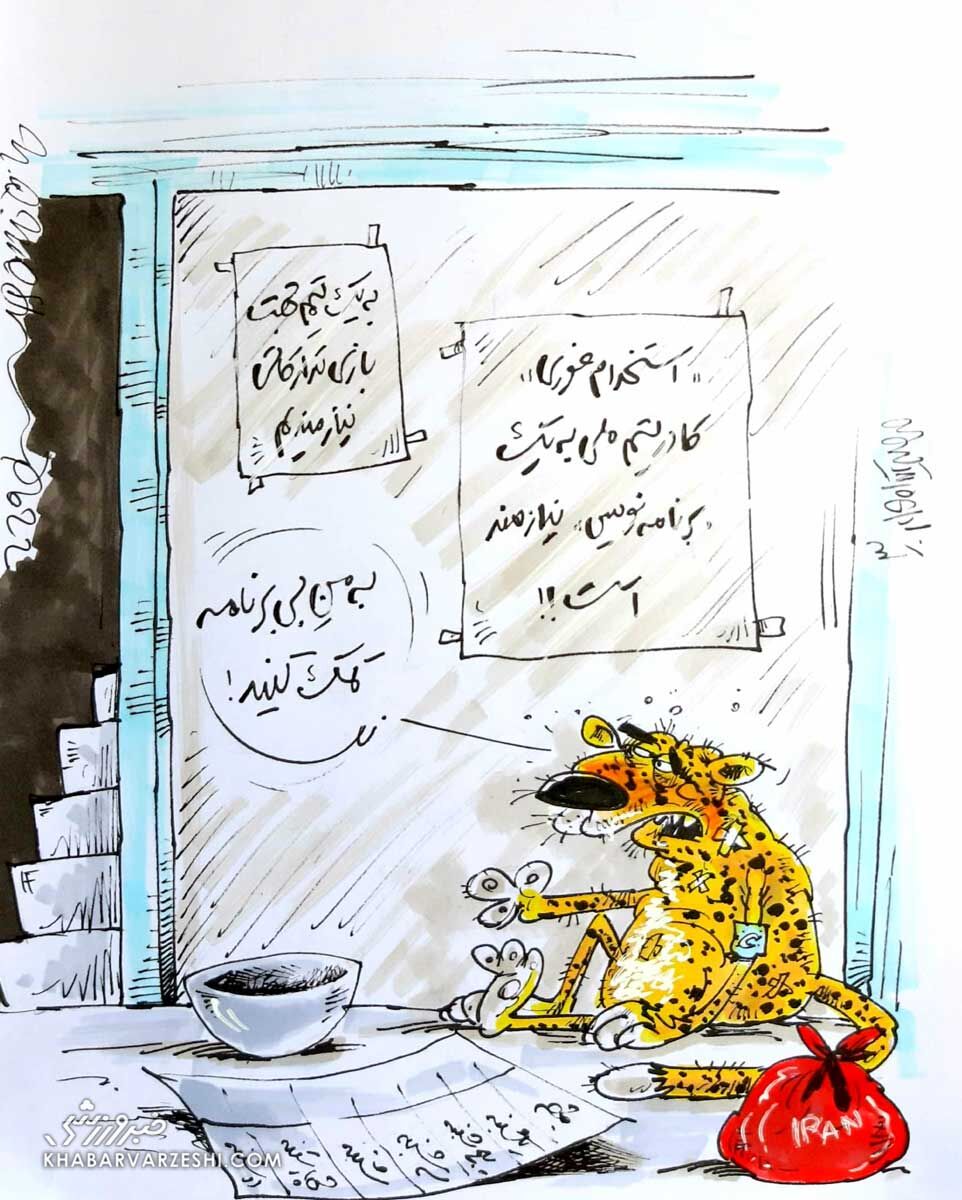 به یک تیم جهت
بازی تدارکاتی
نیازمندیم
«استخدام فوری»
کادر تیم ملی به یک
«برنامه نویس» نیازمند
است!!
به منِ بی برنامه
کمک کنید!
2022
C
IRAN
خبرورزشی
KHABARVARZESHI.COM